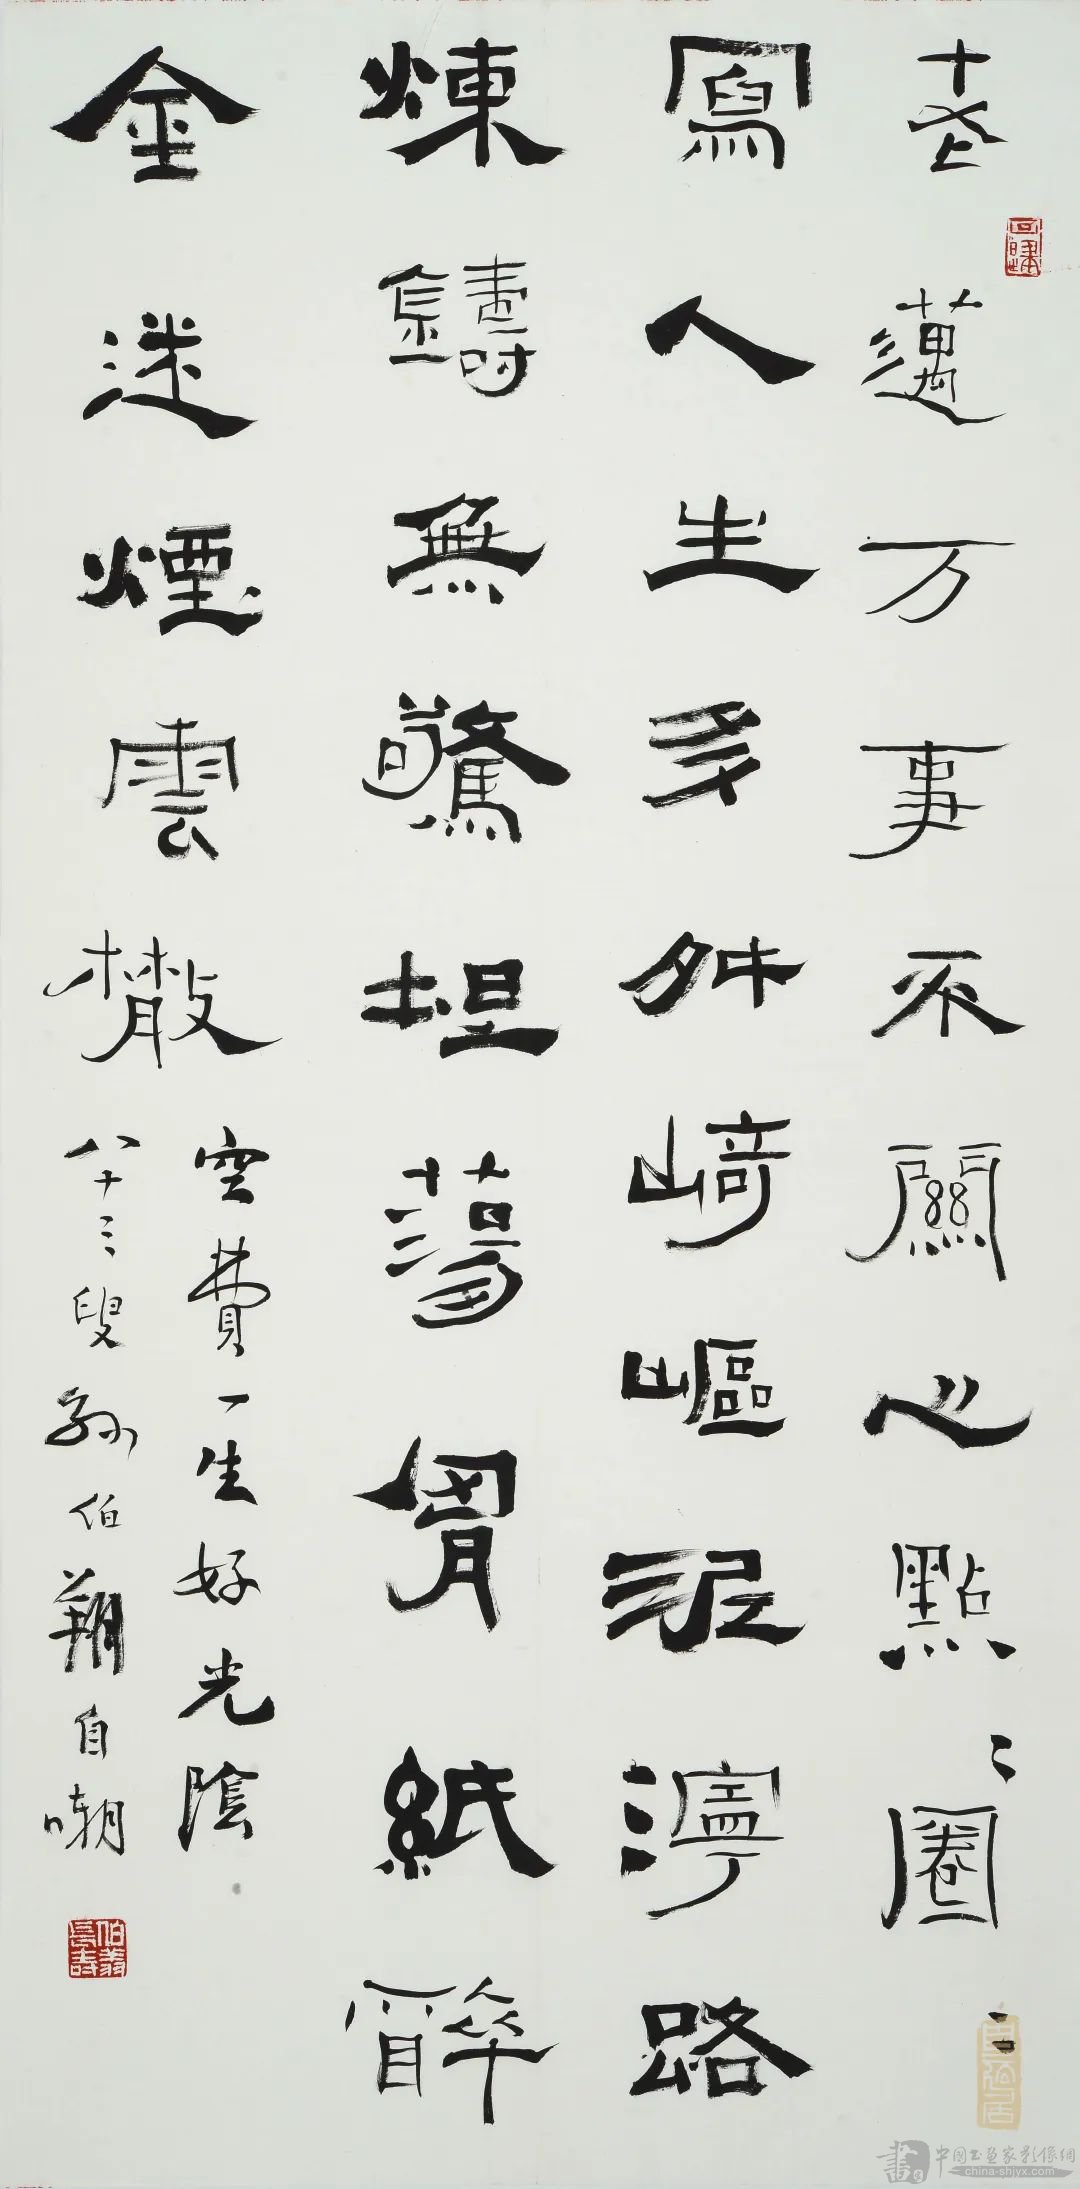 老邁万事不關心點〻圈〻
寫人生多舛崎嶇泥濘路
煉鑄無驚坦蕩胷紙醉
金迷煙雲散
空費一生好光陰
八十三叟孫伯翔自嘲
伯翔長壽
書
中國书画家影像網
china-shjyx.com